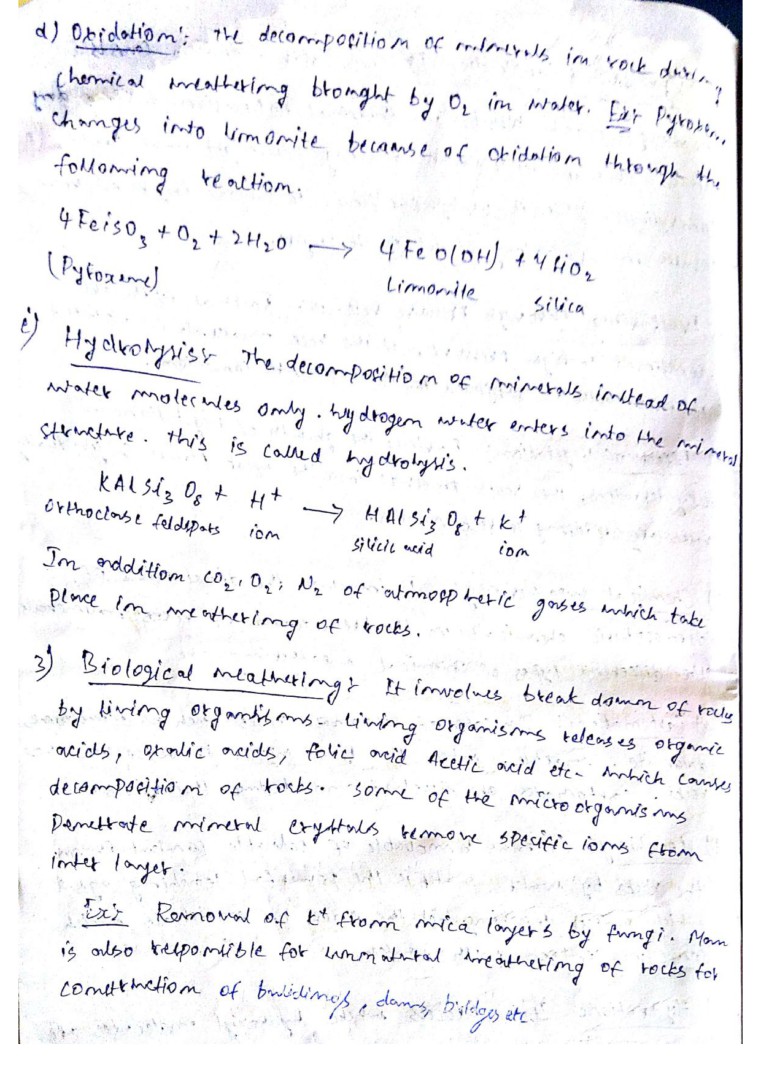 d) Oxidation: The decomposition of minerals in rock during
chemical weathering brought by O₂ in water. Ex: Pyroxene
changes into limonite because of oxidation through the
following reaction.
4FeiSO₃ + O₂ + 2H₂O → 4FeO(OH) + 4SiO₂
(Pyroxene) Limonite Silica
e) Hydrolysis: The decomposition of minerals instead of
water molecules only. hydrogen water enters into the mineral
structure. this is called hydrolysis.
KAlSi₃O₈ + H⁺ → HAlSi₃O₈ + K⁺
orthoclase feldspars ion silicic acid ion
In addition CO₂, O₂, N₂ of atmospheric gases which take
place in weathering of rocks.
3) Biological weathering: It involves break down of rocks
by living organisms. Living organisms releases organic
acids, oxalic acids, folic acid Acetic acid etc. which causes
decomposition of rocks. some of the microorganisms
Penettrate mineral crystals remove specific ions from
inter layer.
Ex: Removal of K⁺ from mica layer's by fungi. Man
is also responsible for unnatural weathering of rocks for
construction of buildings, dams, bridges etc